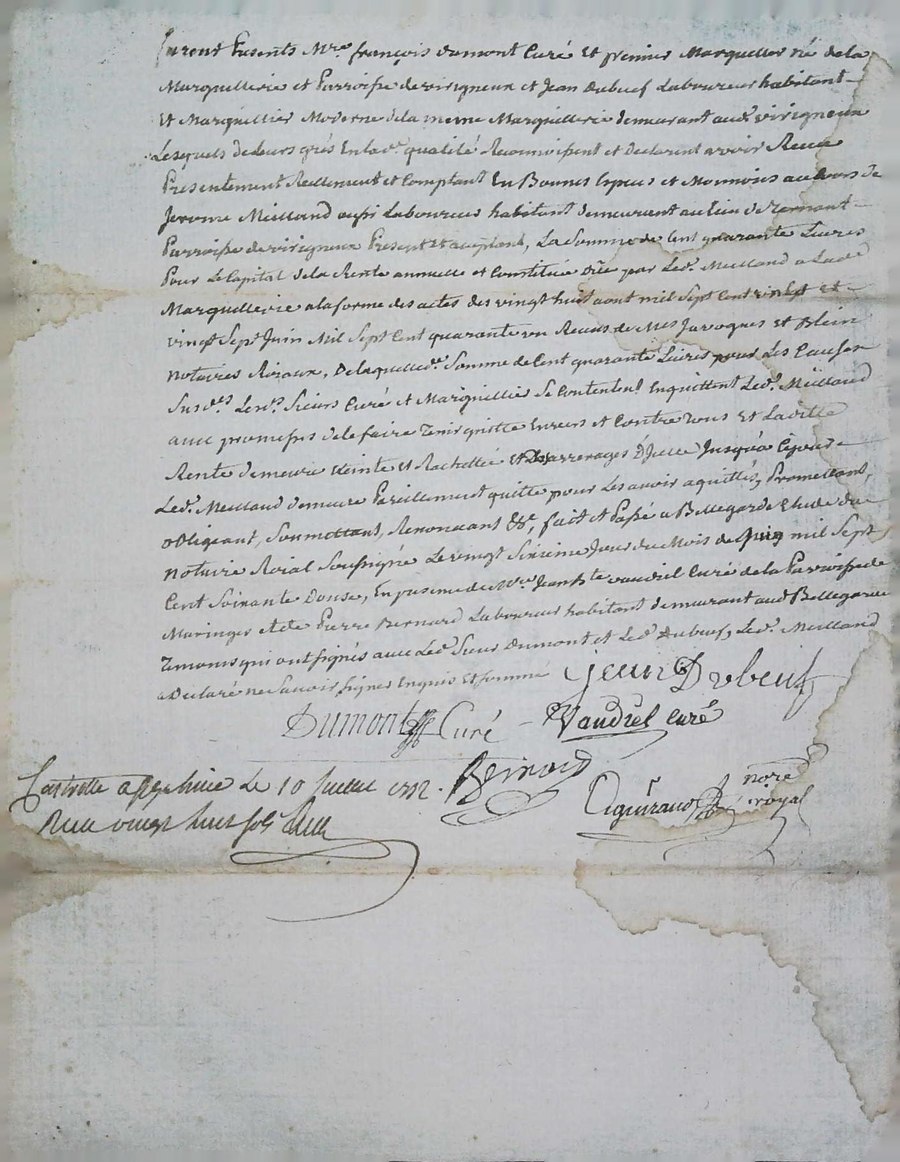 furent Presents Mre françois dumont Curé Et premier Marguellier né de la
Marguellerie et Parroisse de virigneux et Jean Dubœuf Laboureur habitant
Et Marguillier Moderne de la meme Marguellerie demeurant aud. virigneux
Lesquels de Leurs grés En lad.e qualité Reconnoissent et declarent avoir Receu
Presentement Reellement et Comptant En Bonnes Especes et Monnoies au Cours de
Jerome Meilland aussi Laboureur habitant demeurant au lieu de
Parroisse de virigneux Present et acceptant, La Somme de Cent quarante Livres
Pour Le Capital de la Rente annuelle et Constituée Düe par Led. Meilland a Lade
Marguellerie a la forme des actes des vingt huit aout mil Sept Cent vingt et
vingt Sept Juin Mil Sept Cent quarante un Receus de Mes Javogues et Blein
notaires Roiaux, De laquelle de. Somme de Cent quarante Livres pour Les Causes
Susd.es Lesd.s Sieurs Curé et Marguillier Se Contentent Enquittent Led. Meilland
avec promesses de le faire Tenir quitte Envers et Contre tous Et Laditte
Rente demeure Eteinte et Rachettée et Des arrerages d'Icelle Jusqu'a Ce jour
Led. Meilland demeure Pareillement quitte pour Les avoir aquittés, Promettant,
obligeant, Soumettant, Renoncant &c, fait et Passé a Bellegarde Etude du
notaire Roial Soussigné Le vingt Sixieme Jour du Mois de Juin mil Sept
Cent Soixante Douse, En presence de Mre Jean Bte vaudrel Curé de la Parroisse de
Maringes et de Pierre Bernard Laboureur habitant demeurant aud. Bellegarde
Temoins qui ont signés avec Led. Sieur Dumont et Led. Dubœuf, Led. Meilland
a Declaré ne Savoir signer Enquis Et sommé Jean Dubeuf
Dumont Curé Vaudrel curé
Bernard
nore
royal
Le 10 Juillet 1772.
Receu vingt huit sols